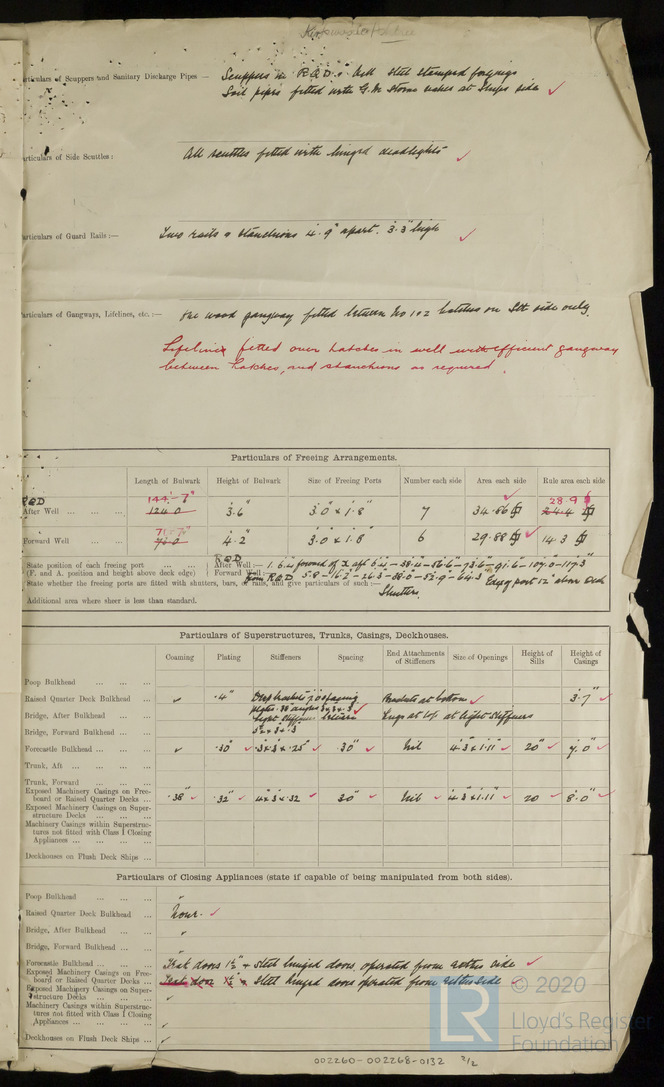 Particulars of Scuppers and Sanitary Discharge Pipes — Scuppers in R.Q.D. & Well steel stamped forgings
Soil pipes fitted with G.M. Storm valves at Ships side ✓
Particulars of Side Scuttles :  All scuttles fitted with hinged deadlights ✓
Particulars of Guard Rails :— Two rails & stanchions 4'.9" apart. 3'.3" high ✓
Particulars of Gangways, Lifelines, etc. :— One wood gangway fitted between No 1 & 2 hatches on side only.
Lifelines fitted over hatches in well with efficient gangway
between hatches, and stanchions as required.
Particulars of Freeing Arrangements.
Length of Bulwark Height of Bulwark Size of Freeing Ports Number each side Area each side Rule area each side
RQD 144'-7" ✓ 28.9
After Well ... ... ... 124.0 3'.6" 3'.0" x 1'.8" 7 34.86 24.4
71'-7"
Forward Well ... ... 4'.2" 3'.0 x 1'.8" 6 29.88 ✓ 14.3
State position of each freeing port ... ... RQD After Well :—
(F. and A. position and height above deck edge) Forward Well :— from RQD 5.8 - 16.2 - 26.3 - 38.0 - 52.9 - 64.3 Edge of port 12" above Deck
State whether the freeing ports are fitted with shutters, bars, or rails, and give particulars of such :— Shutters.
Additional area where sheer is less than standard.
Particulars of Superstructures, Trunks, Casings, Deckhouses.
Coaming Plating Stiffeners Spacing End Attachments of Stiffeners Size of Openings Height of Sills Height of Casings
Poop Bulkhead ... ... ...
Raised Quarter Deck Bulkhead ... ✓ .4" Deep brackets spacing Brackets at bottom ✓ 3'.7" ✓
Bridge, After Bulkhead ... ... Lugs at top at light stiffeners
Bridge, Forward Bulkhead ...
Forecastle Bulkhead ... ... ... ✓ .30" ✓ 3 x 3 x .25" ✓ 30" ✓ Nil 4'.3 x 1'.11" ✓ 20" ✓ 7'.0" ✓
Trunk, Aft ... ... ...
Trunk, Forward ... ... ...
Exposed Machinery Casings on Freeboard or Raised Quarter Decks ... .38" ✓ .32" ✓ 4 x 3 x .32 ✓ 30" ✓ Nil ✓ 4'.3 x 1'.11" ✓ 20 ✓ 8'.0" ✓
Exposed Machinery Casings on Superstructure Decks ... ... ...
Machinery Casings within Superstructures not fitted with Class I Closing Appliances ... ... ... ...
Deckhouses on Flush Deck Ships ...
Particulars of Closing Appliances (state if capable of being manipulated from both sides).
Poop Bulkhead ... ... ... "
Raised Quarter Deck Bulkhead ... None. ✓
Bridge, After Bulkhead ... ... "
Bridge, Forward Bulkhead ... "
Forecastle Bulkhead ... ... ... Teak doors 1½" & Steel hinged doors operated from either side ✓
Exposed Machinery Casings on Freeboard or Raised Quarter Decks ... Teak door 1½" & Steel hinged doors operated from either side ✓
Exposed Machinery Casings on Superstructure Decks ... ... ... "
Machinery Casings within Superstructures not fitted with Class I Closing Appliances ... ... ... ... "
Deckhouses on Flush Deck Ships ... "
LR © 2020
Lloyd's Register
Foundation
002260-002268-0132 2/2